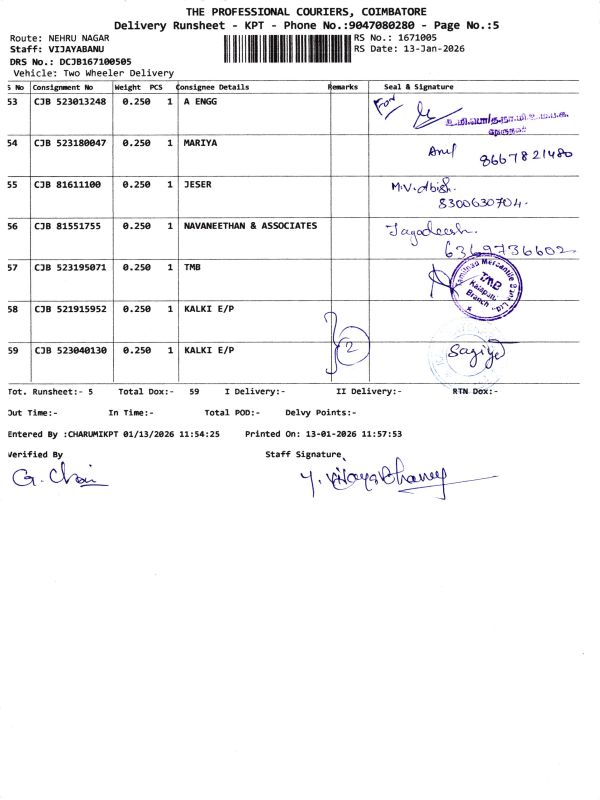 THE PROFESSIONAL COURIERS, COIMBATORE
Delivery Runsheet - KPT - Phone No.:9047080280 - Page No.:5
Route: NEHRU NAGAR RS No.: 1671005
Staff: VIJAYABANU RS Date: 13-Jan-2026
DRS No.: DCJB167100505
Vehicle: Two Wheeler Delivery
S No Consignment No Weight PCS Consignee Details Remarks Seal & Signature
53 CJB 523013248 0.250 1 A ENGG For
54 CJB 523180047 0.250 1 MARIYA 8667821480
55 CJB 81611100 0.250 1 JESER M.V. Abish.
8300630704.
56 CJB 81551755 0.250 1 NAVANEETHAN & ASSOCIATES Jagadeesh.
6369736602
57 CJB 523195071 0.250 1 TMB Tamilnad Mercantile Bank Ltd. TMB Branch
58 CJB 521915952 0.250 1 KALKI E/P
59 CJB 523040130 0.250 1 KALKI E/P 2
Tot. Runsheet:- 5 Total Dox:- 59 I Delivery:- II Delivery:- RTN Dox:-
Out Time:- In Time:- Total POD:- Delvy Points:-
Entered By :CHARUMIKPT 01/13/2026 11:54:25 Printed On: 13-01-2026 11:57:53
Verified By Staff Signature